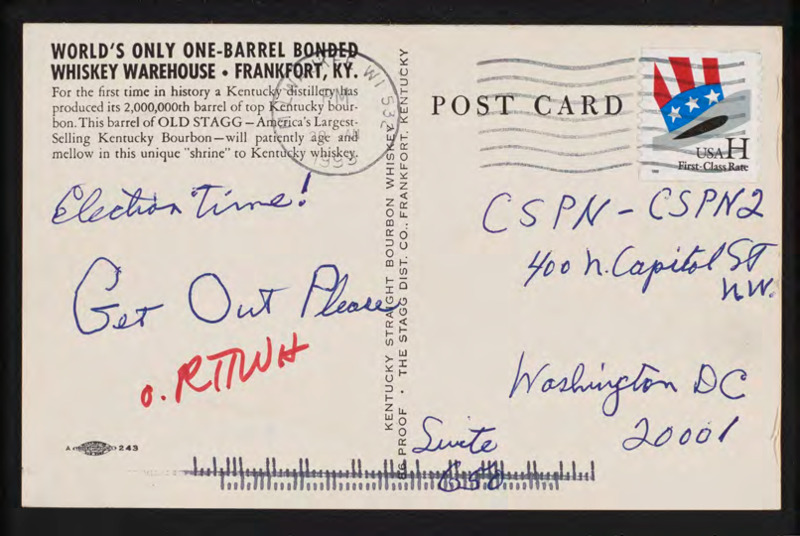 WORLD'S ONLY ONE-BARREL BONDED
WHISKEY WAREHOUSE • FRANKFORT, KY.
For the first time in history a Kentucky distillery has
produced its 2,000,000th barrel of top Kentucky bour-
bon. This barrel of OLD STAGG—America's Largest-
Selling Kentucky Bourbon—will patiently age and
mellow in this unique "shrine" to Kentucky whiskey.
Election Time!
Get Out Please
o. RTTWH
A 243
KENTUCKY STRAIGHT BOURBON WHISKEY
86 PROOF • THE STAGG DIST. CO., FRANKFORT, KENTUCKY
WI 532
PM
POST CARD
USA H
First-Class Rate
CSPN - CSPN2
400 N. Capitol ST
N.W.
Washington DC
20001
Suite
650